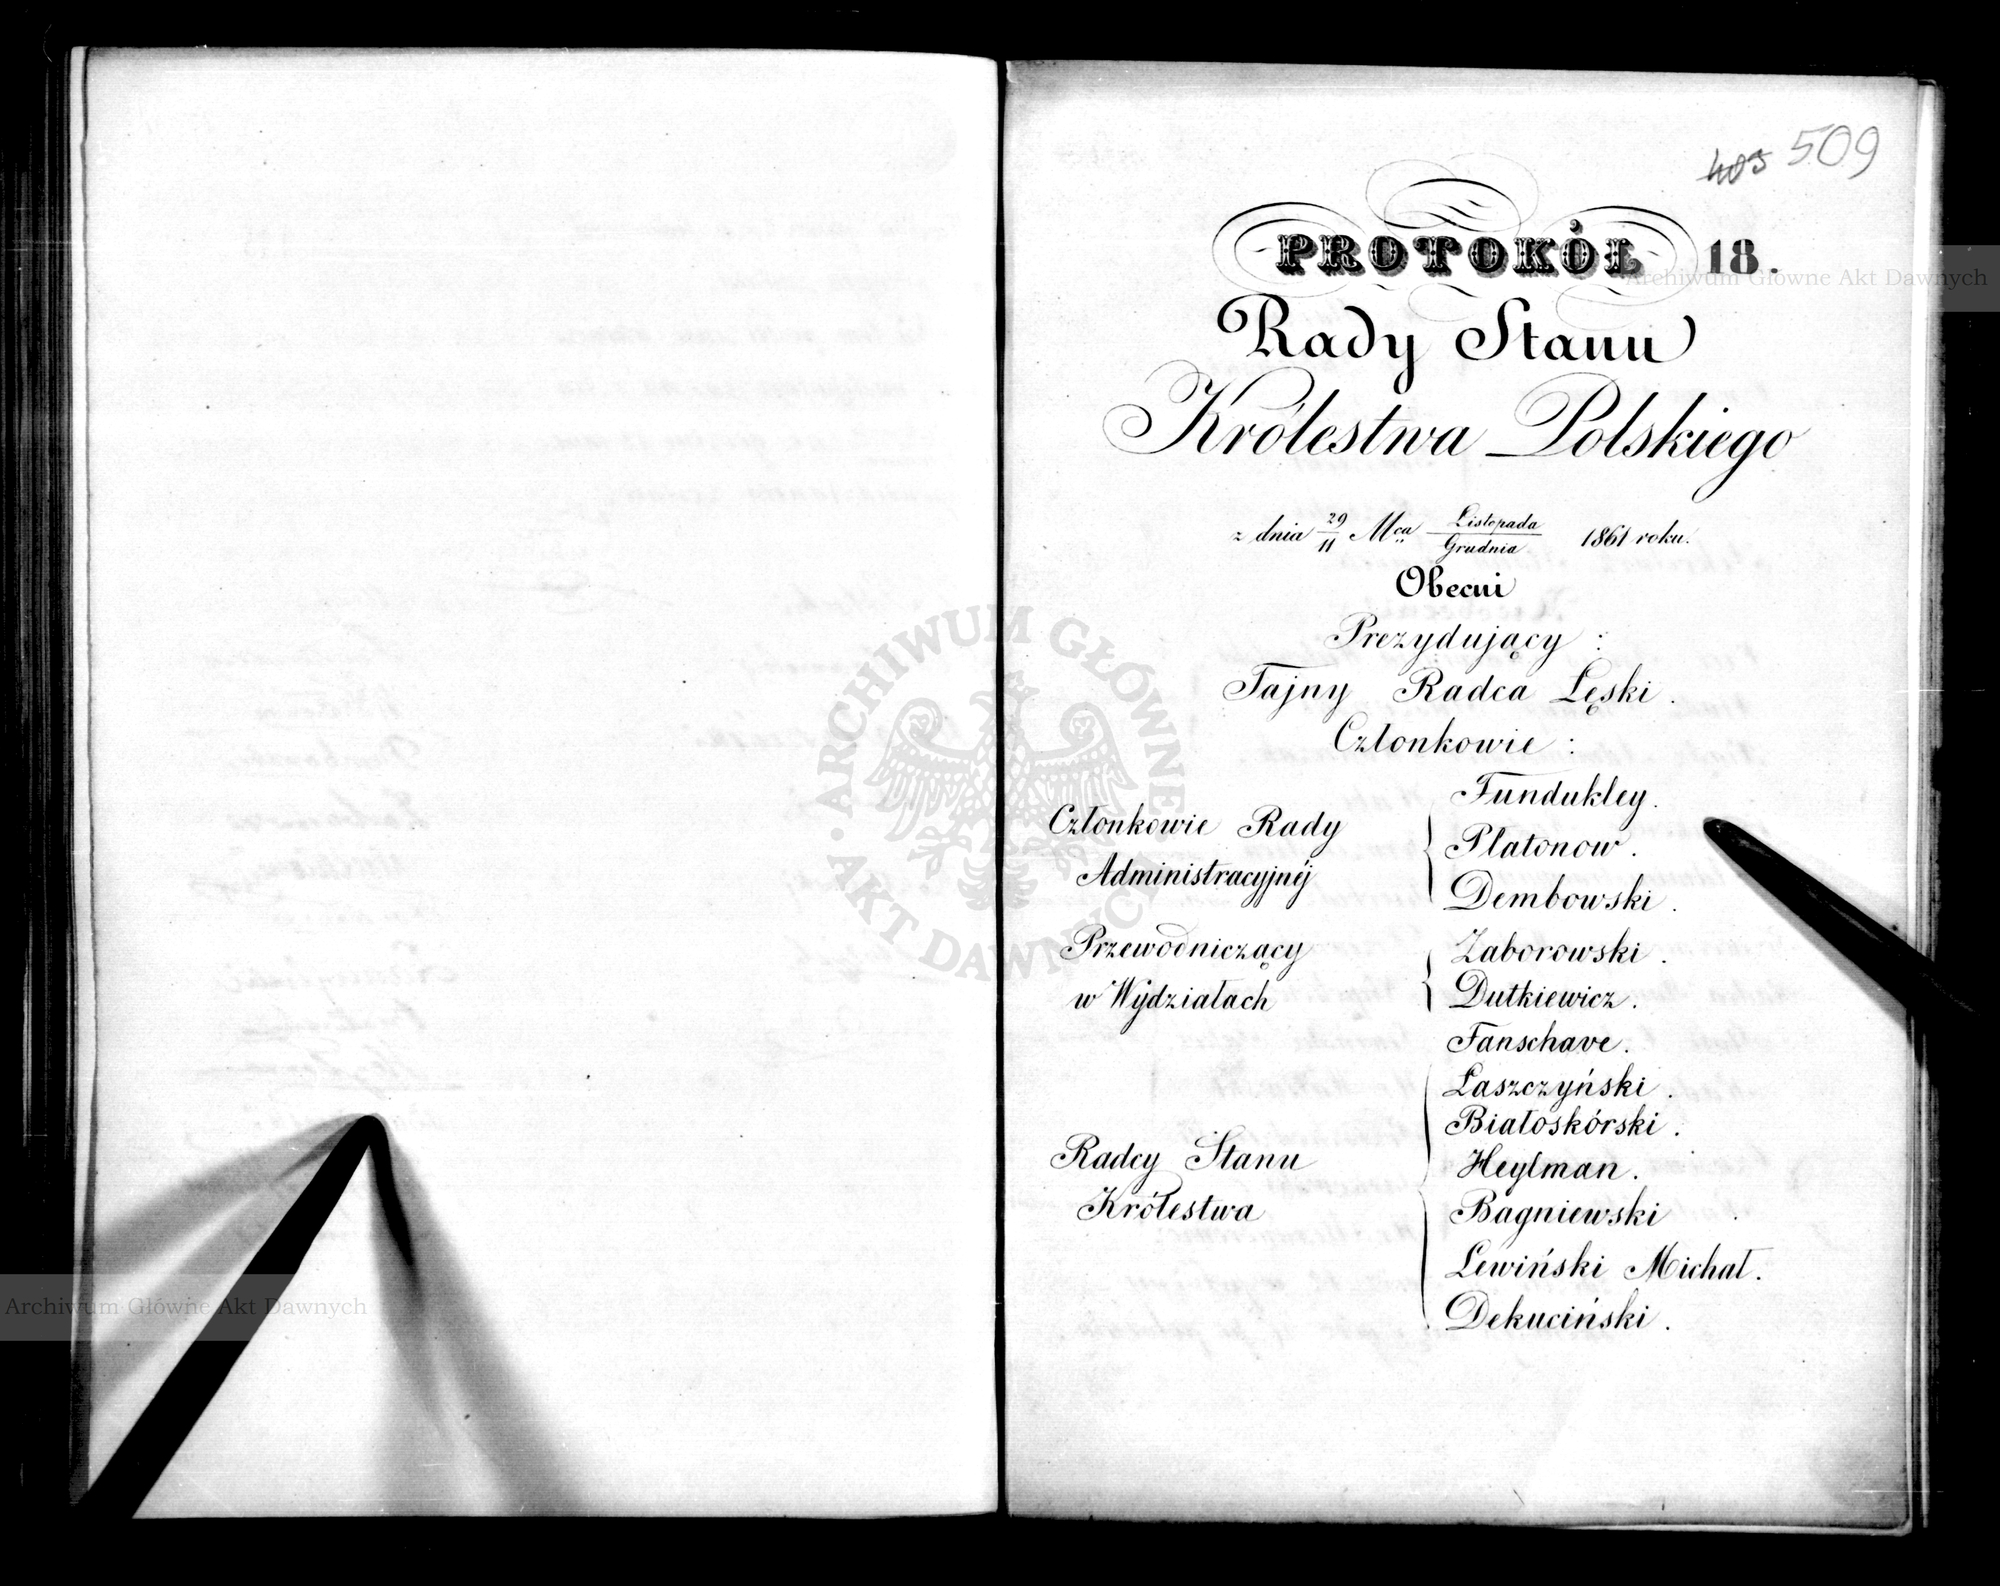 405 509
PROTOKÓŁ 18.
Rady Stanu
Królestwa Polskiego
z dnia 29/11 Mca Listopada/Grudnia 1861 roku.
Obecni
Prezydujący :
Tajny Radca Łęski.
Członkowie :
Członkowie Rady Administracyjnéj
Fundukley.
Platonow.
Dembowski.
Przewodniczący w Wydziałach
Zaborowski.
Dutkiewicz.
Radcy Stanu Królestwa
Fanschave.
Łaszczyński.
Białoskórski.
Heylman.
Bagniewski
Lewiński Michał.
Dekuciński.
ARCHIWUM GŁÓWNE AKT DAWNYCH
Archiwum Główne Akt Dawnych
Archiwum Główne Akt Dawnych